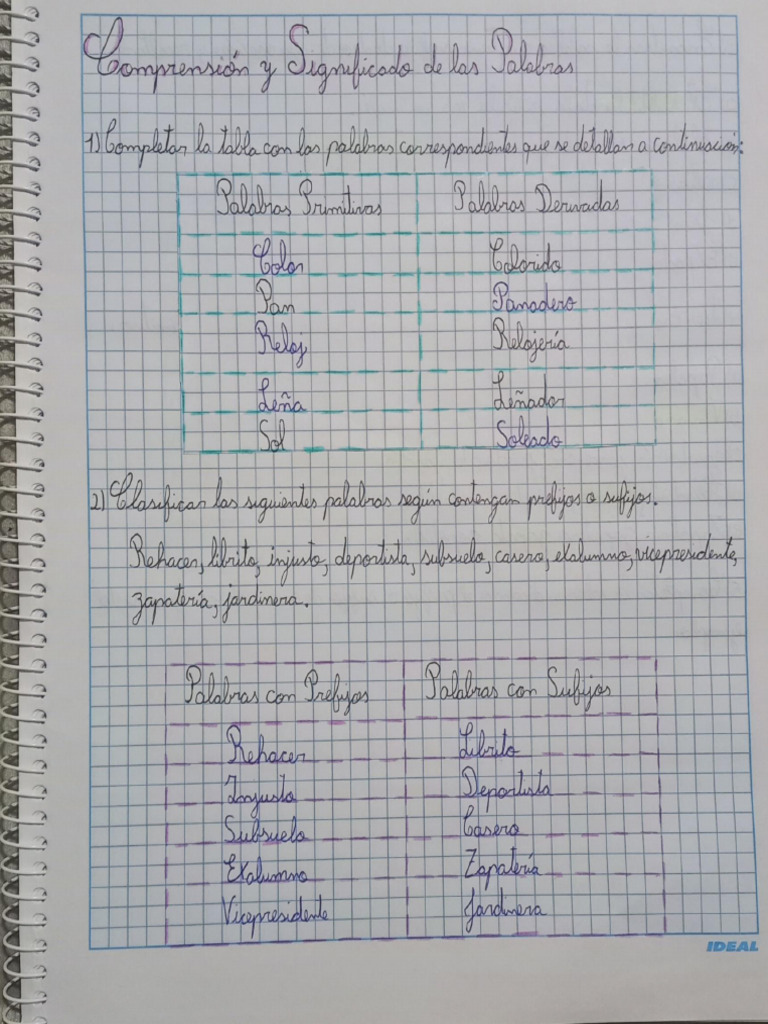 Comprensión y Significado de las Palabras
1) Completar la tabla con las palabras correspondientes que se detallan a continuación:
Palabras Primitivas Palabras Derivadas
Color Colorido
Pan Panadero
Reloj Relojería
Leña Leñador
Sol Soleado
2) Clasificar las siguientes palabras según contengan prefijos o sufijos.
Rehacer, librito, injusto, deportista, subsuelo, casero, exalumno, vicepresidente,
zapatería, jardinera.
Palabras con Prefijos Palabras con Sufijos
Rehacer Librito
Injusto Deportista
Subsuelo Casero
Exalumno Zapatería
Vicepresidente Jardinera
IDEAL